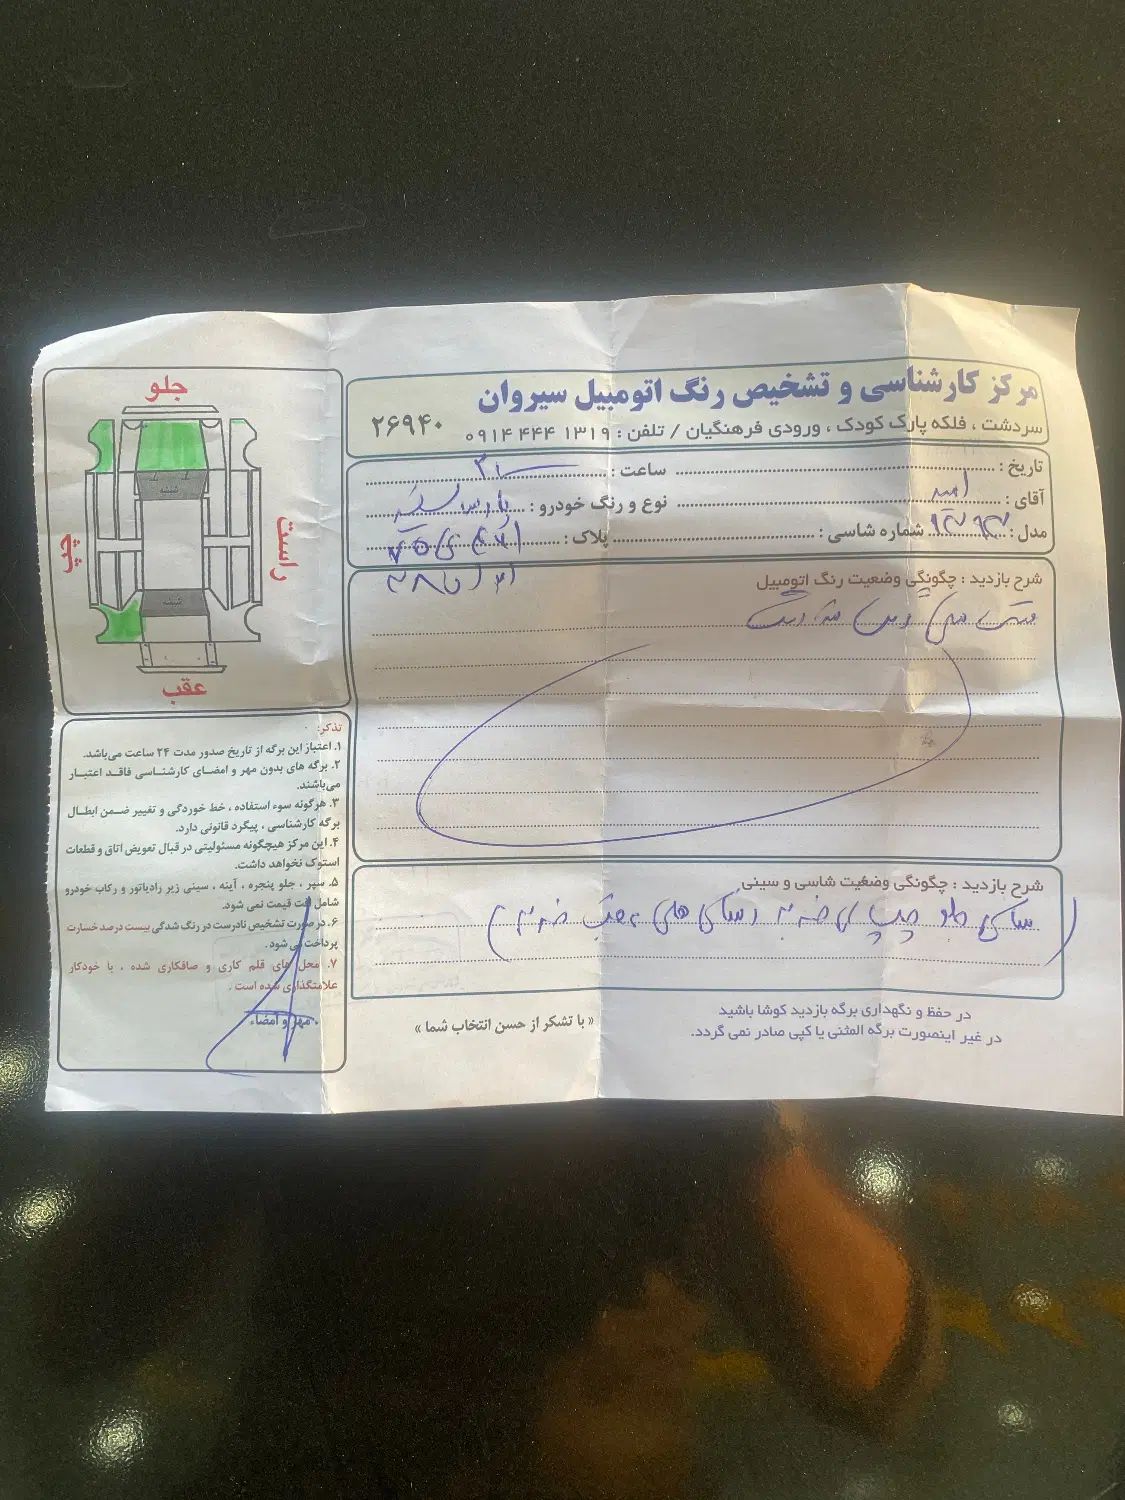 مرکز کارشناسی و تشخیص رنگ اتومبیل سیروان
سردشت ، فلکه پارک کودک ، ورودی فرهنگیان / تلفن : ۱۳۱۹ ۴۴۴ ۰۹۱۴
۲۶۹۴۰
تاریخ : ساعت :
آقای : امید نوع و رنگ خودرو : پارس سفید
مدل : ۱۳۹۳ شماره شاسی : پلاک :
شرح بازدید : چگونگی وضعیت رنگ اتومبیل
شرح بازدید : چگونگی وضعیت شاسی و سینی
جلو چپ ضربه
در حفظ و نگهداری برگه بازدید کوشا باشید
در غیر اینصورت برگه المثنی یا کپی صادر نمی گردد.
« با تشکر از حسن انتخاب شما »
جلو
شیشه
چپ
راست
شیشه
عقب
تذکر:
۱. اعتباز این برگه از تاریخ صدور مدت ۲۴ ساعت می‌باشد.
۲. برگه های بدون مهر و امضای کارشناسی فاقد اعتبار
می‌باشند.
۳. هرگونه سوء استفاده ، خط خوردگی و تغییر ضمن ابطال
برگه کارشناسی ، پیگرد قانونی دارد.
۴. این مرکز هیچگونه مسئولیتی در قبال تعویض اتاق و قطعات
استوک نخواهد داشت.
۵. سپر ، جلو پنجره ، آینه ، سینی زیر رادیاتور و رکاب خودرو
شامل افت قیمت نمی شود.
۶. در صورت تشخیص نادرست در رنگ شدگی بیست درصد خسارت
پرداخت می شود.
۷. محل های قلم کاری و صافکاری شده ، با خودکار
علامتگذاری شده است .
مهر و امضاء